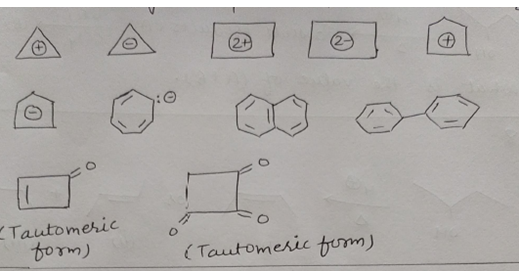 + - 2+ 2- +
- :-
O O
O O
(Tautomeric
form) (Tautomeric form)